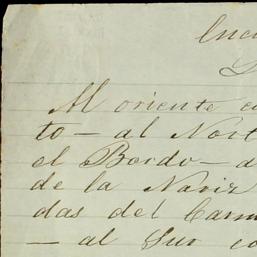 Al oriente co
to — al Nort
el Bordo — a
de la Nariz
das del Carm
— al Sur co